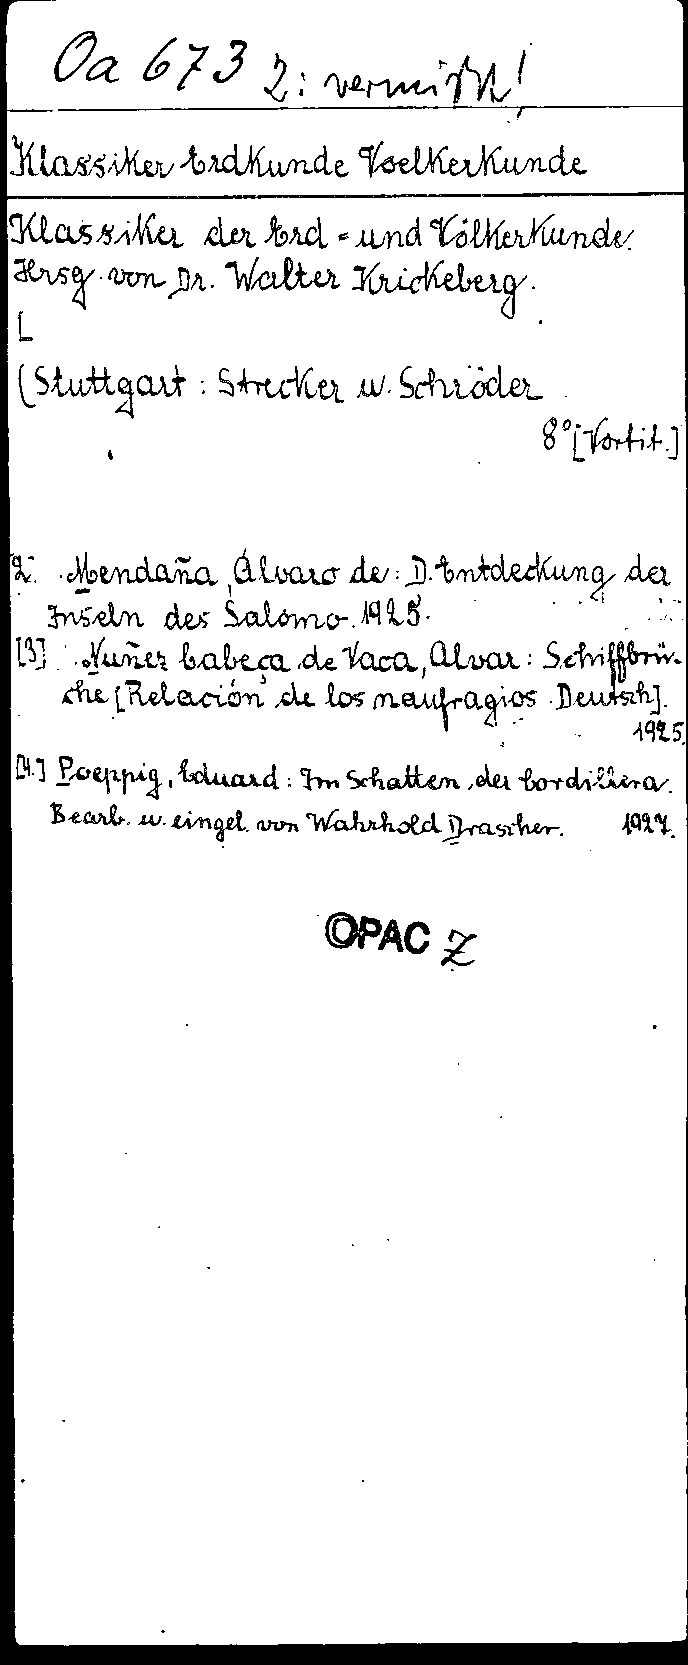 Oa 673 2: vermißt!
Klassiker Erdkunde Voelkerkunde
Klassiker der Erd- und Völkerkunde.
Hrsg. von Dr. Walter Krickeberg.
[
(Stuttgart: Strecker u. Schröder
8° [Vortit.]
[2.] Mendaña, Álvaro de: D. Entdeckung der
Inseln des Salomo. 1925.
[3] Nuñez Cabeça de Vaca, Alvar: Schiffbrü-
che [Relación de los naufragios. Deutsch].
1925.
[4.] Poeppig, Eduard: Im Schatten der Cordillera.
Bearb. u. eingel. von Wahrhold Drascher. 1927.
©PAC Z